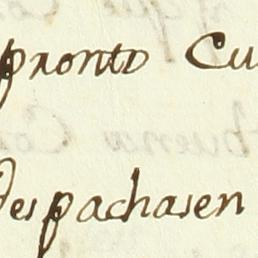 pronto Cu
despachasen